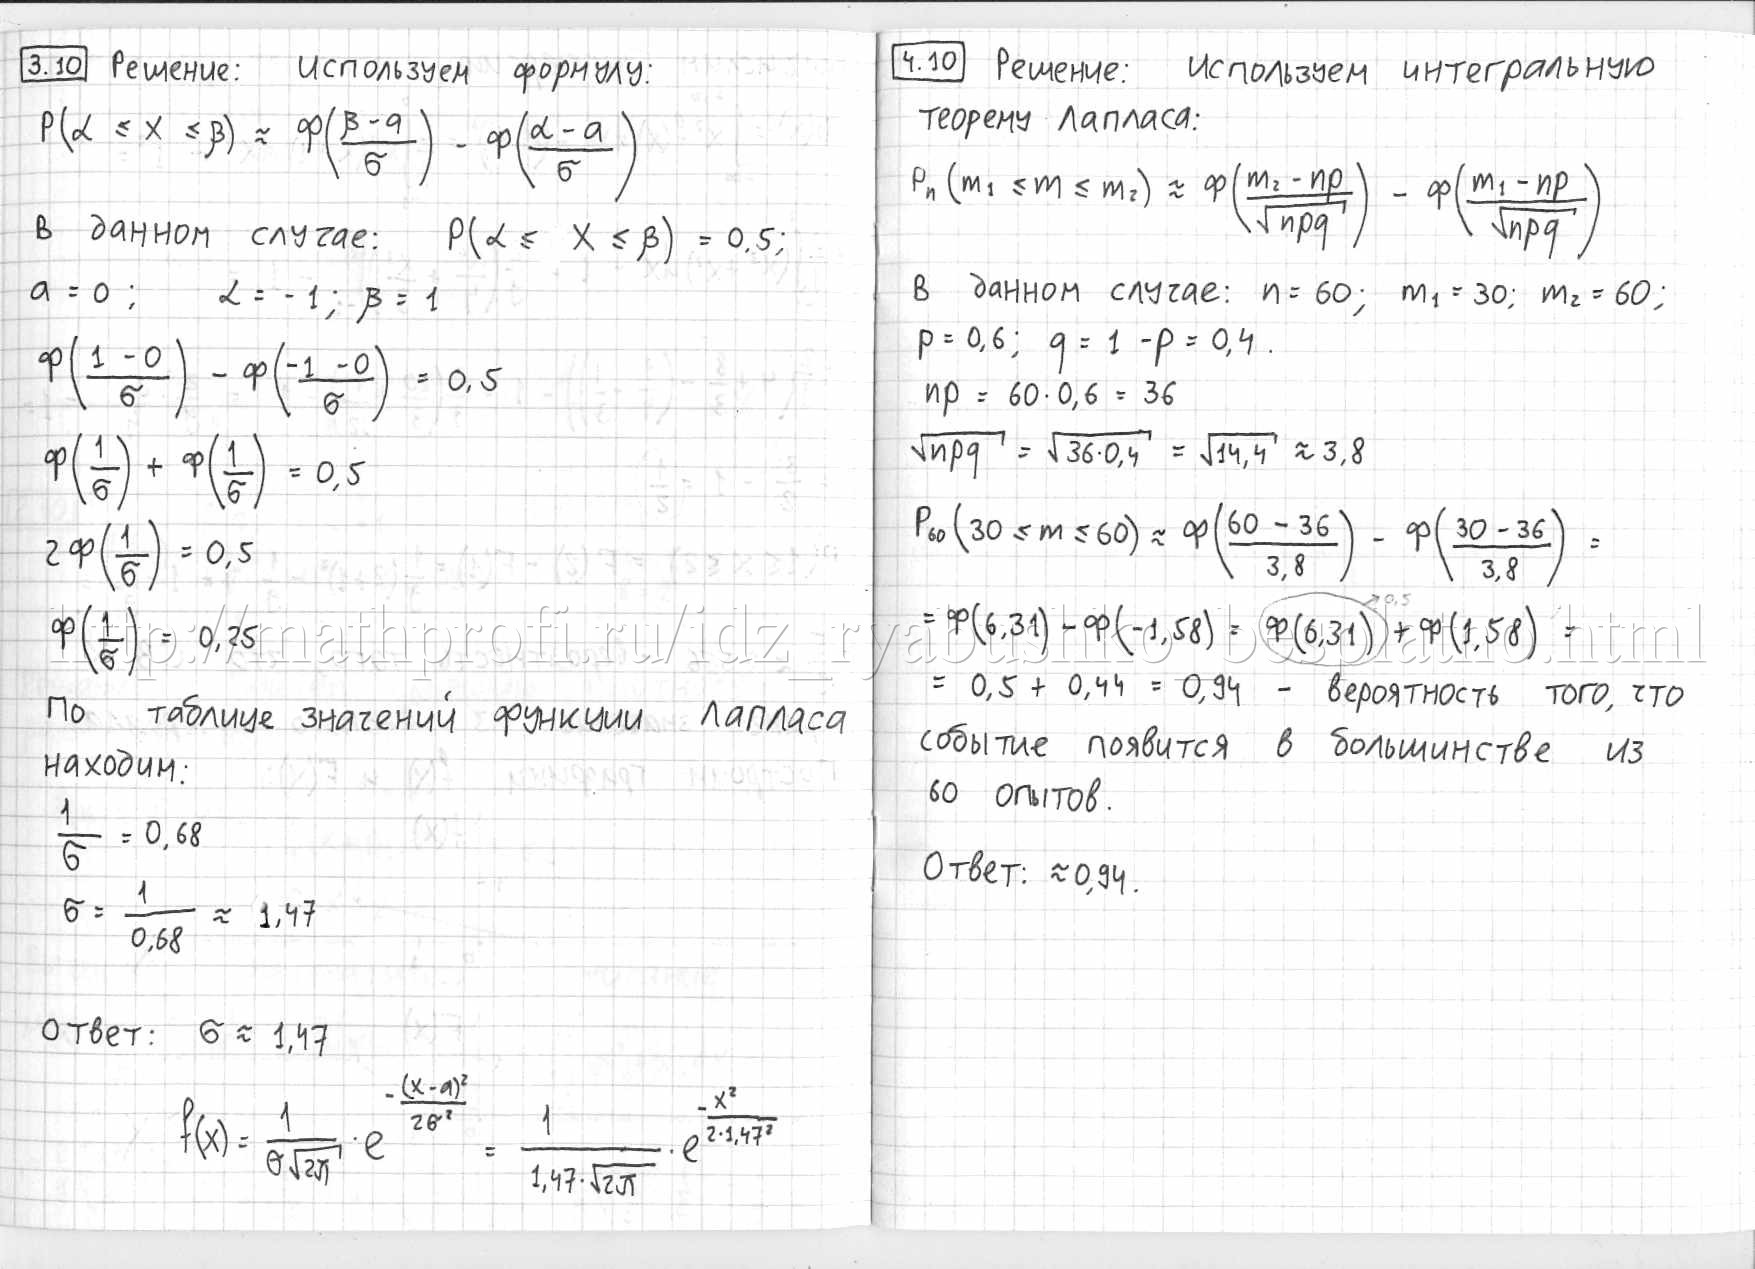 3.10 Решение: Используем формулу:
P(α ≤ X ≤ β) ≈ Ф((β-a)/σ) - Ф((α-a)/σ)
В данном случае: P(α ≤ X ≤ β) = 0,5;
a = 0; α = -1; β = 1
Ф((1-0)/σ) - Ф((-1-0)/σ) = 0,5
Ф(1/σ) + Ф(1/σ) = 0,5
2Ф(1/σ) = 0,5
Ф(1/σ) = 0,25
По таблице значений функции Лапласа
находим:
1/σ = 0,68
σ = 1/0,68 ≈ 1,47
Ответ: σ ≈ 1,47
f(x) = 1/(σ√2π) · e^(-(x-a)²/2σ²) = 1/(1,47·√2π) · e^(-x²/(2·1,47²))
4.10 Решение: Используем интегральную
теорему Лапласа:
Pn(m₁ ≤ m ≤ m₂) ≈ Ф((m₂-np)/√npq) - Ф((m₁-np)/√npq)
В данном случае: n = 60; m₁ = 30; m₂ = 60;
p = 0,6; q = 1 - p = 0,4.
np = 60·0,6 = 36
√npq = √36·0,4 = √14,4 ≈ 3,8
P₆₀(30 ≤ m ≤ 60) ≈ Ф((60-36)/3,8) - Ф((30-36)/3,8) =
= Ф(6,31) - Ф(-1,58) = Ф(6,31) + Ф(1,58) =
0,5
= 0,5 + 0,44 = 0,94 - вероятность того, что
событие появится в большинстве из
60 опытов.
Ответ: ≈ 0,94.
http://mathprofi.ru/idz_ryabushko_besplatno.html